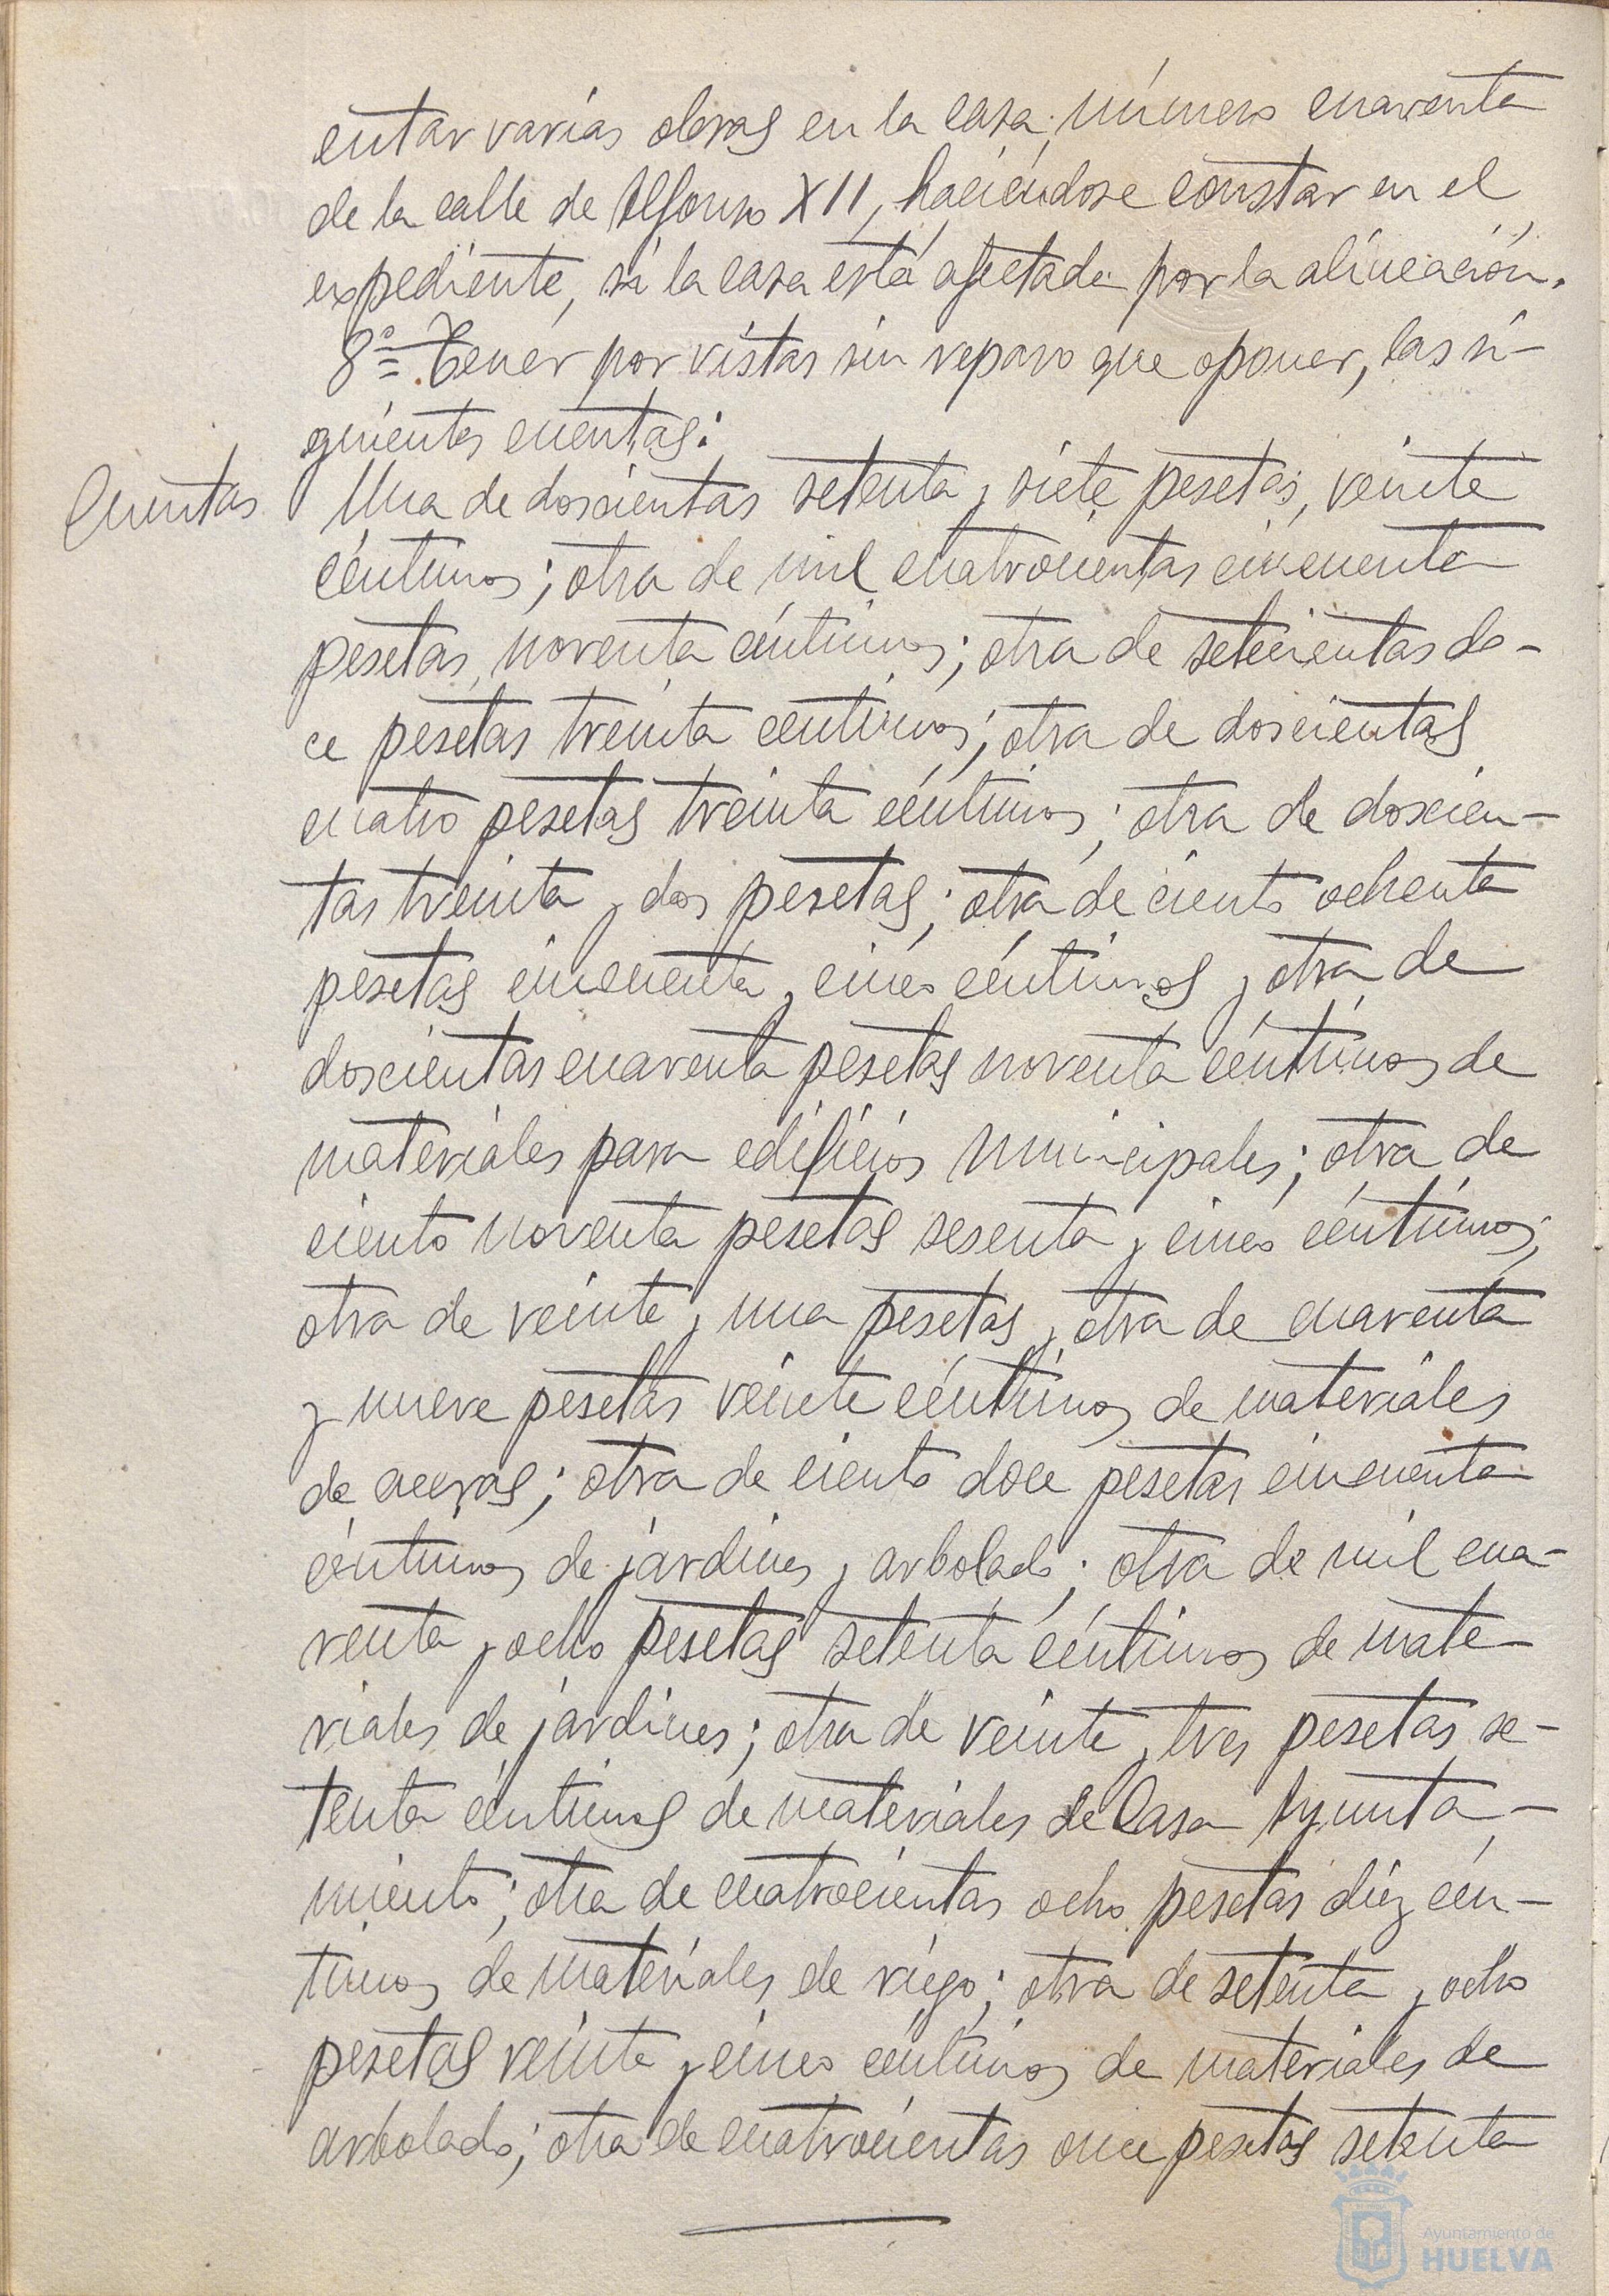 entar varias obras en la casa número cuarenta
de la calle de Alfonso XII, haciéndose constar en el
expediente, si la casa está afectada por la alineación.
8º = Tener por vistas sin reparo que oponer, las si-
guientes cuentas:
Cuentas
Una de doscientas setenta y siete pesetas, veinte
céntimos; otra de mil cuatrocientas cincuenta
pesetas, noventa céntimos; otra de setecientas do-
ce pesetas treinta céntimos; otra de doscientas
cuatro pesetas treinta céntimos; otra de doscien-
tas treinta y dos pesetas; otra de ciento ochenta
pesetas cincuenta y cinco céntimos y otra de
doscientas cuarenta pesetas noventa céntimos de
materiales para edificios municipales; otra de
ciento noventa pesetas sesenta y cinco céntimos;
otra de veinte y una pesetas y otra de cuarenta
y nueve pesetas veinte céntimos de materiales
de aceras; otra de ciento doce pesetas cincuenta
céntimos de jardines y arbolado; otra de mil cua-
renta y ocho pesetas setenta céntimos de mate-
riales de jardines; otra de veinte y tres pesetas se-
tenta céntimos de materiales de Casa Ayunta-
miento; otra de cuatrocientas ocho pesetas diez cén-
timos de materiales de riego; otra de setenta y ocho
pesetas veinte y cinco céntimos de materiales de
arbolado; otra de cuatrocientas once pesetas setenta
Ayuntamiento de
HUELVA